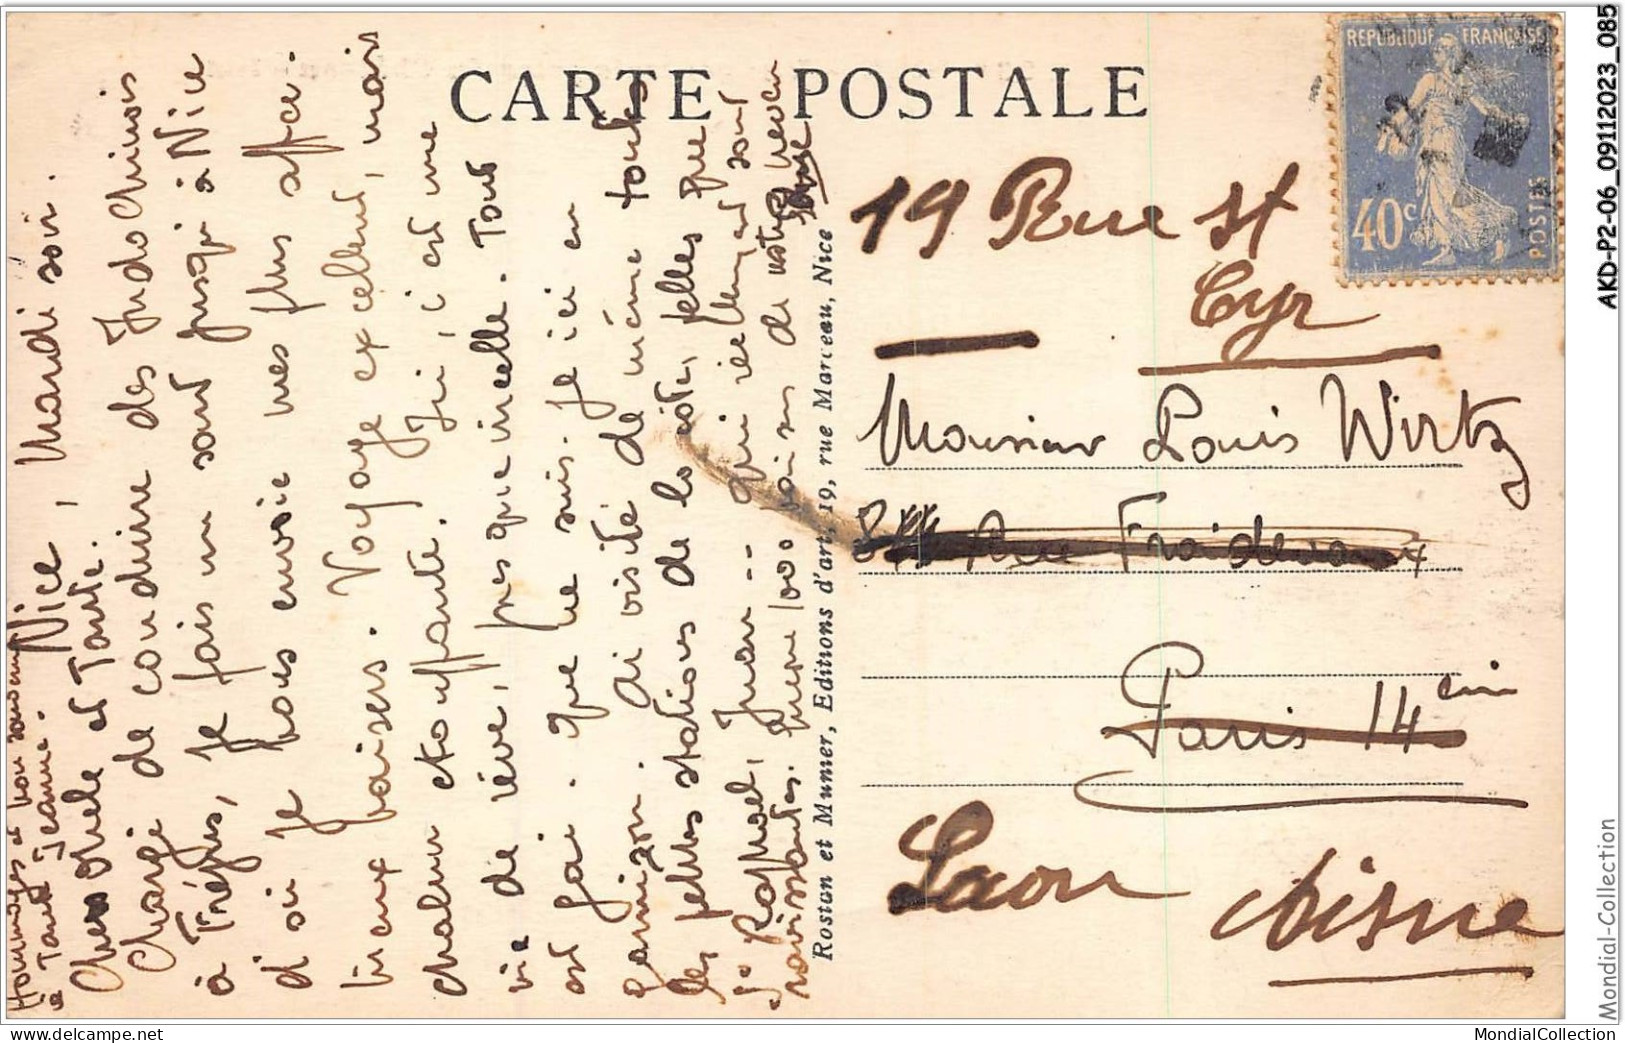 CARTE POSTALE
REPUBLIQUE FRANÇAISE
40c
POSTES
Nice, Mardi soir.
Chers Oncle et Tante.
Chargé de conduire des Indochinois
à Fréjus, je fais un saut jusqu'à Nice
d'où je vous envoie mes plus affec.
tueux baisers. Voyage excellent, mais
chaleur étouffante. Ici, c'est une
vie de rêve, presque irréelle. Tout
est gai. Que ne suis-je ici en
garnison. Ai visité de même toutes
les petites stations de la côte, telles que
St Raphael, Juan -- qui réellement sont
ravissantes.
1000 baisers de votre neveu
Hommages et bon souvenir
Tante Jeanne.
Rostan et Munier, Editions d'art, 19, rue Marceau, Nice
19 Rue St
Cyr
Monsieur Louis Wirtz
Rue Froidevaux
Paris 14 eme
Laon
Aisne
AKD-P2-06_09112023_085
Mondial-Collection
www.delcampe.net
MondialCollection